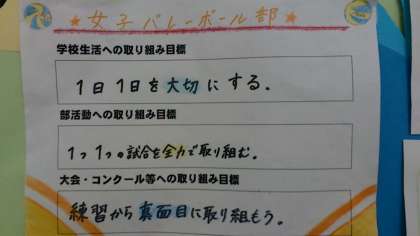 ★女子バレーボール部★
学校生活への取り組み目標
1日1日を大切にする。
部活動への取り組み目標
1つ1つの試合を全力で取り組む。
大会・コンクール等への取り組み目標
練習から真面目に取り組もう。